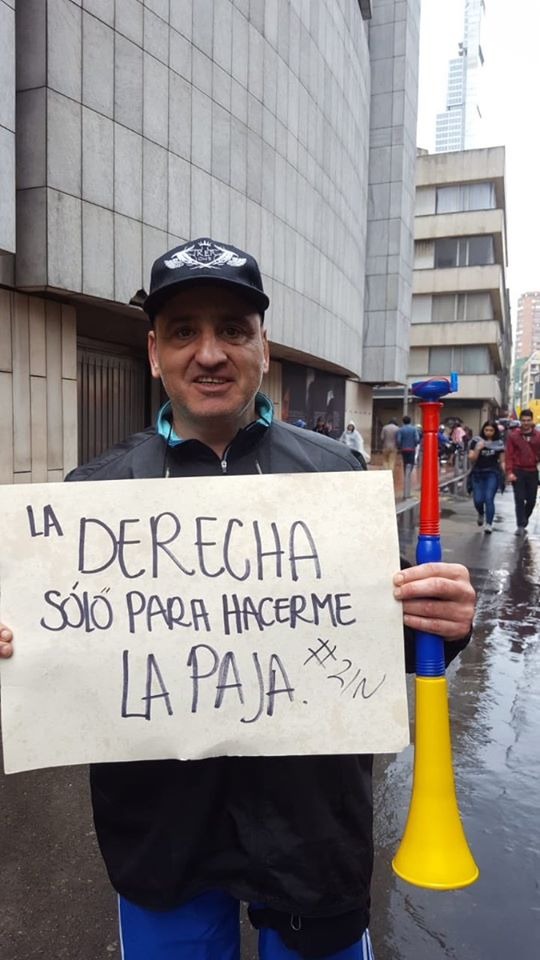 LA DERECHA
SÓLO PARA HACERME
LA PAJA.
#21N